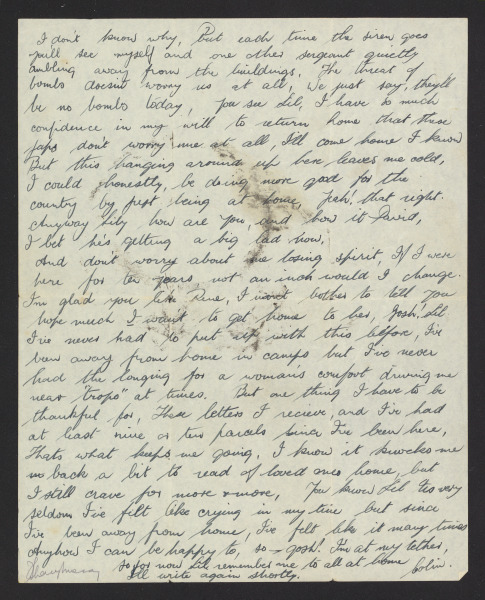 I don't know why, But each time the siren goes
you'll see myself and one other sergeant quietly
ambling away from the buildings. The threat of
bombs doesnt worry us at all, We just say, they'll
be no bombs today, you see Lil, I have so much
confidence in my will to return home that these
japs dont worry me at all, I'll come home I know
But this hanging around up here leaves me cold,
I could honestly, be doing more good for the
country by just being at home, Yeah, that right.
Anyway Lily how are you, and how is David,
I bet his getting a big lad now,
And dont worry about me losing spirit, If I were
here for ten years not an inch would I change.
I'm glad you like Rene, I wont bother to tell you
how much I want to get home to her, Gosh, Lil
I've never had to put up with this before, I've
been away from home in camps but I've never
had the longing for a woman's comfort driving me
near "tropo" at times. But one thing I have to be
thankful for, These letters I recieve, and I've had
at least nine or ten parcels since I've been here,
Thats what keeps me going. I know it knocks me
back a bit to read of loved ones home, but
I still crave for more & more, You know Lil tis very
seldom I've felt like crying in my time but since
I've been away from home, I've felt like it many times
Anyhow I can be happy to, so - gosh! I'm at my tether,
so for now Lil remember me to all at home
I'll write again shortly. Colin.